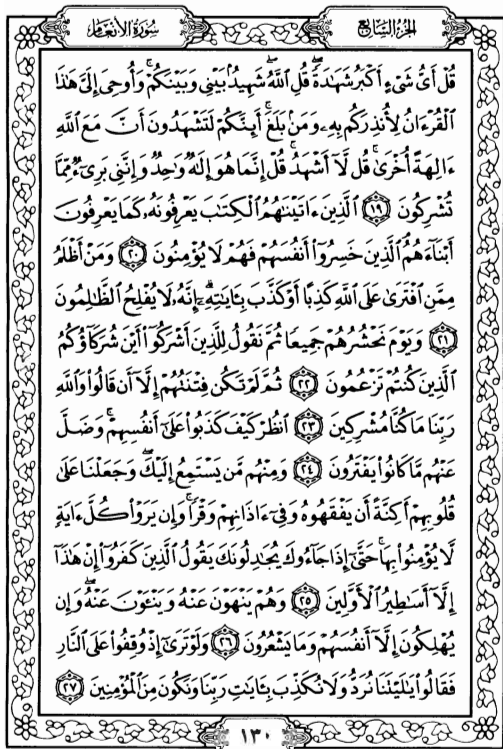 سُورَةُ الأَنْعَامِ
الجُزْءُ السَّابِعُ
قُلْ أَىُّ شَىْءٍ أَكْبَرُ شَهَٰدَةً ۖ قُلِ ٱللَّهُ ۖ شَهِيدُۢ بَيْنِى وَبَيْنَكُمْ ۚ وَأُوحِىَ إِلَىَّ هَٰذَا
ٱلْقُرْءَانُ لِأُنذِرَكُم بِهِۦ وَمَنۢ بَلَغَ ۚ أَئِنَّكُمْ لَتَشْهَدُونَ أَنَّ مَعَ ٱللَّهِ
ءَالِهَةً أُخْرَىٰ ۚ قُل لَّآ أَشْهَدُ ۚ قُلْ إِنَّمَا هُوَ إِلَٰهٌ وَٰحِدٌ وَإِنَّنِى بَرِىٓءٌ مِّمَّا
تُشْرِكُونَ ١٩ ٱلَّذِينَ ءَاتَيْنَٰهُمُ ٱلْكِتَٰبَ يَعْرِفُونَهُۥ كَمَا يَعْرِفُونَ
أَبْنَآءَهُمُ ٱلَّذِينَ خَسِرُوٓا۟ أَنفُسَهُمْ فَهُمْ لَا يُؤْمِنُونَ ٢٠ وَمَنْ أَظْلَمُ
مِمَّنِ ٱفْتَرَىٰ عَلَى ٱللَّهِ كَذِبًا أَوْ كَذَّبَ بِـَٔايَٰتِهِۦٓ ۗ إِنَّهُۥ لَا يُفْلِحُ ٱلظَّٰلِمُونَ
٢١ وَيَوْمَ نَحْشُرُهُمْ جَمِيعًا ثُمَّ نَقُولُ لِلَّذِينَ أَشْرَكُوٓا۟ أَيْنَ شُرَكَآؤُكُمُ
ٱلَّذِينَ كُنتُمْ تَزْعُمُونَ ٢٢ ثُمَّ لَمْ تَكُن فِتْنَتُهُمْ إِلَّآ أَن قَالُوا۟ وَٱللَّهِ
رَبِّنَا مَا كُنَّا مُشْرِكِينَ ٢٣ ٱنظُرْ كَيْفَ كَذَبُوا۟ عَلَىٰٓ أَنفُسِهِمْ ۚ وَضَلَّ
عَنْهُم مَّا كَانُوا۟ يَفْتَرُونَ ٢٤ وَمِنْهُم مَّن يَسْتَمِعُ إِلَيْكَ ۖ وَجَعَلْنَا عَلَىٰ
قُلُوبِهِمْ أَكِنَّةً أَن يَفْقَهُوهُ وَفِىٓ ءَاذَانِهِمْ وَقْرًا ۚ وَإِن يَرَوْا۟ كُلَّ ءَايَةٍ
لَّا يُؤْمِنُوا۟ بِهَا ۚ حَتَّىٰٓ إِذَا جَآءُوكَ يُجَٰدِلُونَكَ يَقُولُ ٱلَّذِينَ كَفَرُوٓا۟ إِنْ هَٰذَآ
إِلَّآ أَسَٰطِيرُ ٱلْأَوَّلِينَ ٢٥ وَهُمْ يَنْهَوْنَ عَنْهُ وَيَنْـَٔوْنَ عَنْهُ ۖ وَإِن
يُهْلِكُونَ إِلَّآ أَنفُسَهُمْ وَمَا يَشْعُرُونَ ٢٦ وَلَوْ تَرَىٰٓ إِذْ وُقِفُوا۟ عَلَى ٱلنَّارِ
فَقَالُوا۟ يَٰلَيْتَنَا نُرَدُّ وَلَا نُكَذِّبَ بِـَٔايَٰتِ رَبِّنَا وَنَكُونَ مِنَ ٱلْمُؤْمِنِينَ ٢٧
١٣٠